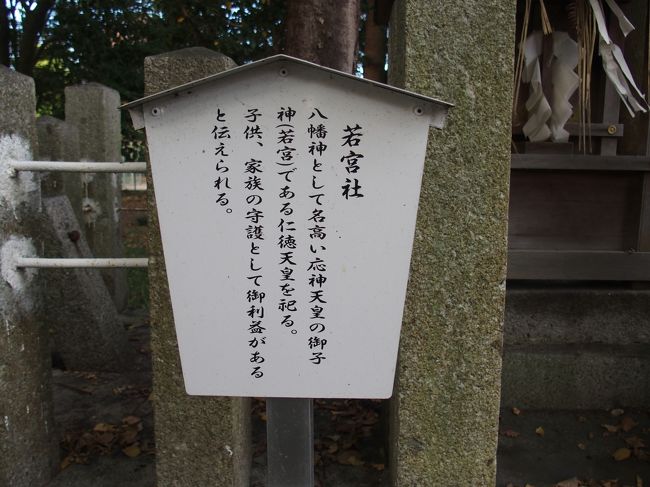 若宮社
八幡神として名高い応神天皇の御子
神(若宮)である仁徳天皇を祀る。
子供、家族の守護として御利益がある
と伝えられる。